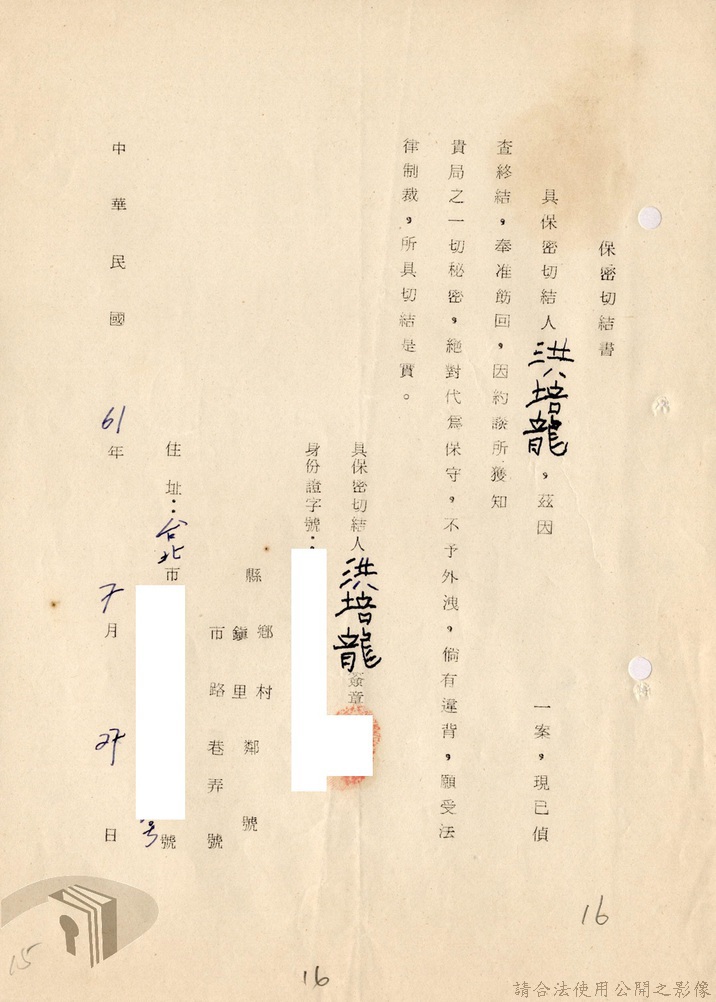 保密切結書
具保密切結人洪培龍，茲因　　　一案，現已偵
查終結，奉准飭回，因約談所獲知
貴局之一切秘密，絕對代爲保守，不予外洩，倘有違背，願受法
律制裁，所具切結是實。
具保密切結人洪培龍簽章
身份證字號：
縣　鄉鎮　村里　鄰　號
市　路　巷　弄　號
住址：台北市　号號
中華民國61年7月27日
16
16
15
請合法使用公開之影像